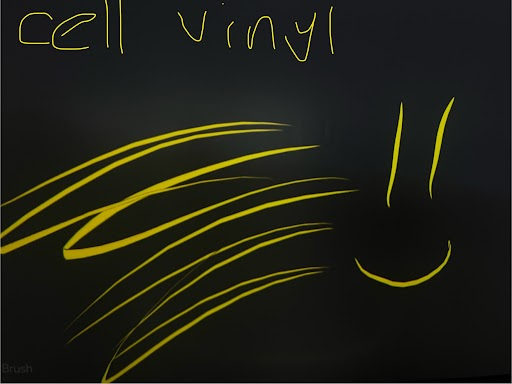 cell vinyl
Brush